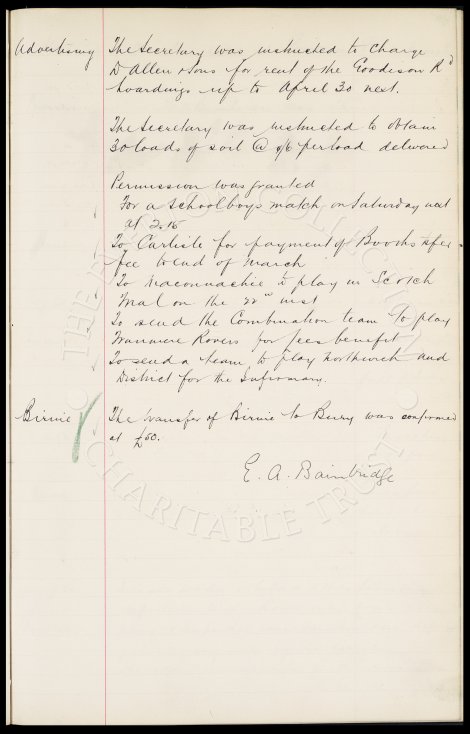 Advertising The Secretary was instructed to charge
D Allen & Sons for rent of the Goodison Rd
hoardings up to April 30 next.
The Secretary was instructed to obtain
30 loads of soil @ 2/6 per load delivered
Permission was granted
For a schoolboys match on Saturday next
at 2.15
To Carlisle for payment of Booths tsfer
fee to end of March
To Maconnachie to play in Scotch
Trial on the 22nd inst
To send the Combination team to play
Tranmere Rovers for
benefit
To send a team to play Northwich and
District for the Infirmary.
Birnie The transfer of Birnie to Bury was confirmed
at £50.
E. A. Bainbridge
THE EVERTON COLLECTION
CHARITABLE TRUST